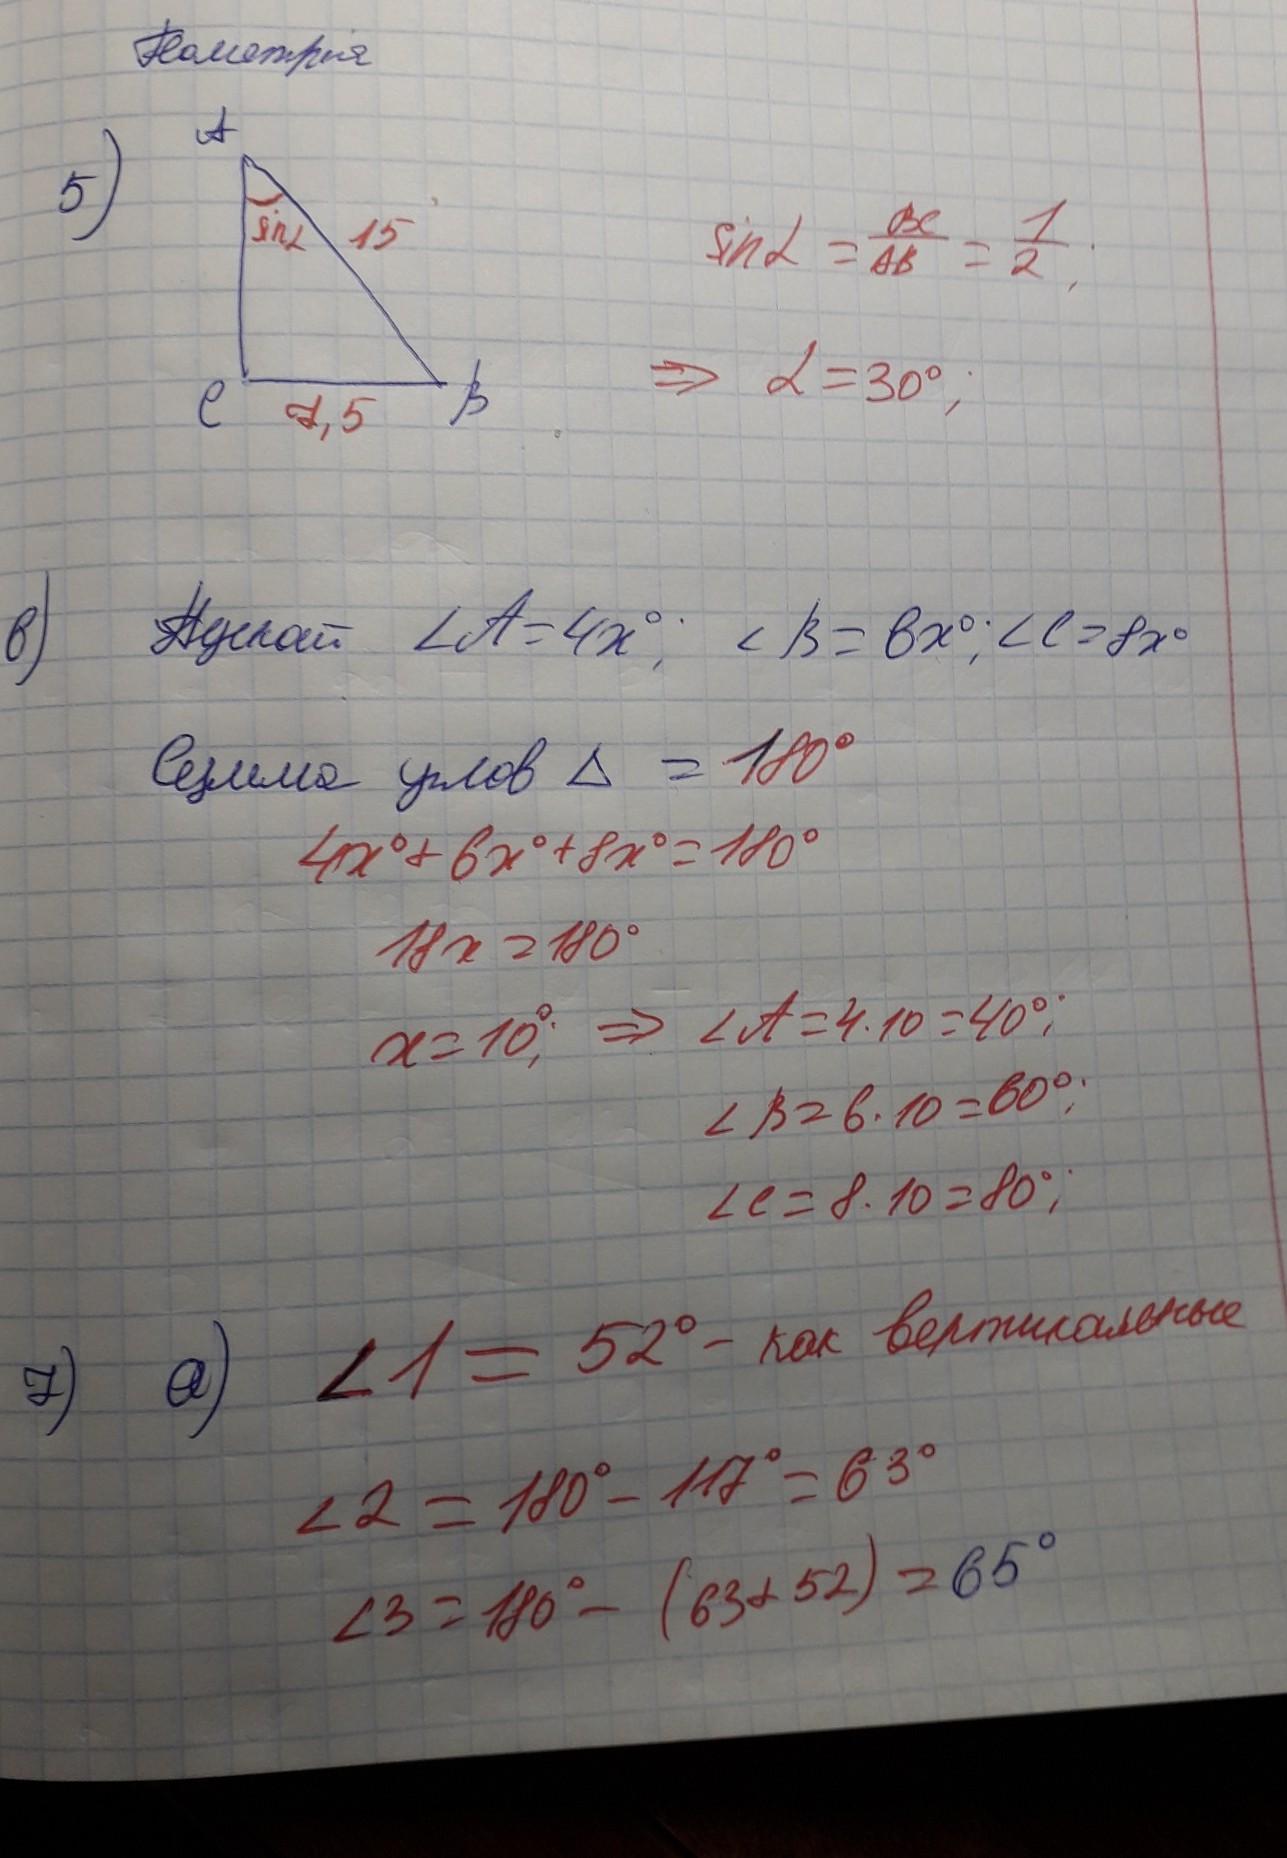 Геометрия
5)
A
sinα
15
C
7,5
B
sinα = BC/AB = 1/2;
⇒ α = 30°;
6) Пускай ∠A = 4x°; ∠B = 6x°; ∠C = 8x°
Сумма углов Δ = 180°
4x° + 6x° + 8x° = 180°
18x = 180°
x = 10°; ⇒ ∠A = 4·10 = 40°;
∠B = 6·10 = 60°;
∠C = 8·10 = 80°;
7) а) ∠1 = 52° – как вертикальные
∠2 = 180° – 117° = 63°
∠3 = 180° – (63+52) = 65°